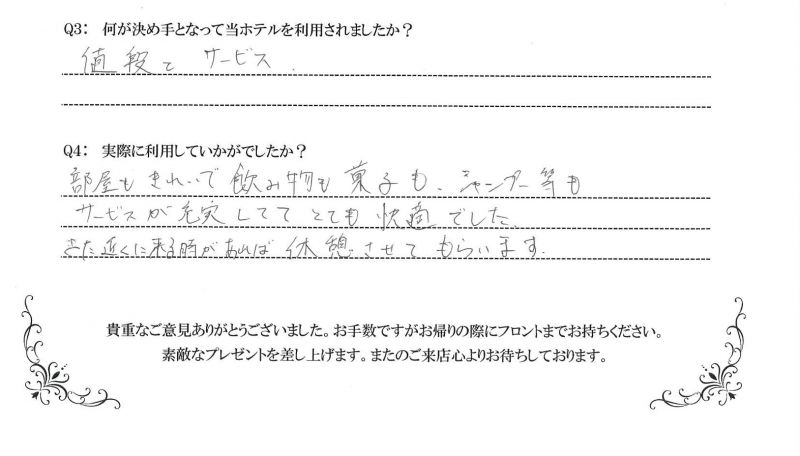 Q3： 何が決め手となって当ホテルを利用されましたか？
値段と サービス.
Q4： 実際に利用していかがでしたか？
部屋もきれいで飲み物も菓子も、シャンプー等も
サービスが充実しててとても快適でした。
また近くに来る時があれば休憩させてもらいます.
貴重なご意見ありがとうございました。お手数ですがお帰りの際にフロントまでお持ちください。
素敵なプレゼントを差し上げます。またのご来店心よりお待ちしております。